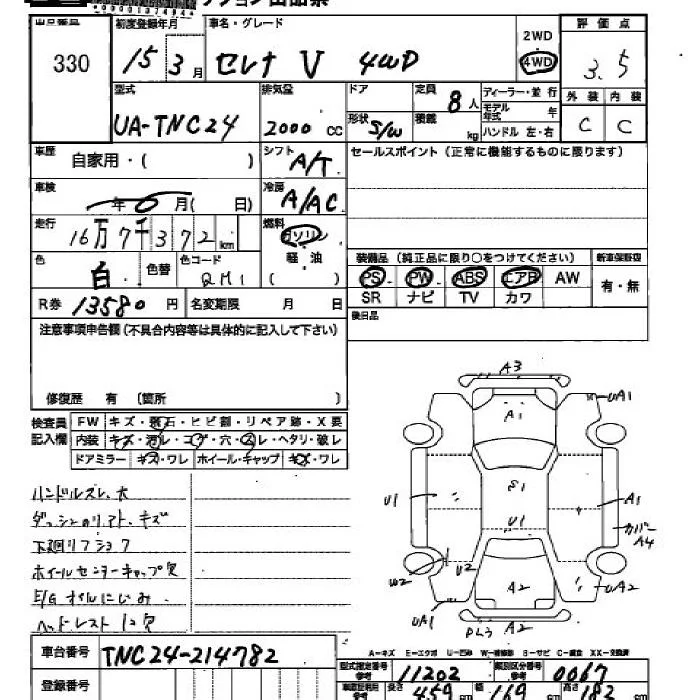 出品番号 初度登録年月 車名・グレード 2WD 評価点
330 15 3月 セレナ V 4WD 4WD 3.5
型式 排気量 ドア 定員 8人 ディーラー・並行 外装 内装
UA-TNC24 2000 cc 形状 S/W 積載 kg モデル年式 年 C C
ハンドル 左・右
車歴 自家用・( ) シフト A/T セールスポイント(正常に機能するものに限ります)
車検 年 6月( 日) 冷房 A/AC
走行 16万7千372km 燃料 ガソリン
軽油
装備品(純正品に限り○をつけてください) 新車保証書
色 白 色替 色コード QM1 ( )
PS・PW・ABS・エアB・AW 有・無
R券 13580円 名変期限 月 日 SR ナビ TV カワ
注意事項申告欄(不具合内容等は具体的に記入して下さい) 後日品
修復歴 有〔箇所 〕
検査員記入欄 FW キズ・飛石・ヒビ割・リペア跡・X要
内装 キズ・汚レ・コゲ・穴・スレ・ヘタリ・破レ
ドアミラー キズ・ワレ ホイール・キャップ キズ・ワレ
A3
A1 UA1
S1
U1 A1
U1 カバーA4
W2 U2 UA2
UA1 A2
A2
ハンドルスレ大
ダッシュのリアト、キズ
下廻リフショク
ホイールセンターキャップ欠
E/Gオイルにじみ
ヘッドレスト1コ欠
A−キズ E−エクボ U−凹み W−補修跡 B−サビ C−腐食 XX−交換済
車台番号 TNC24-214782
型式指定番号 参考 11202 類別区分番号 参考 0067
登録番号 長さ 459cm 幅 169cm 高さ 182cm